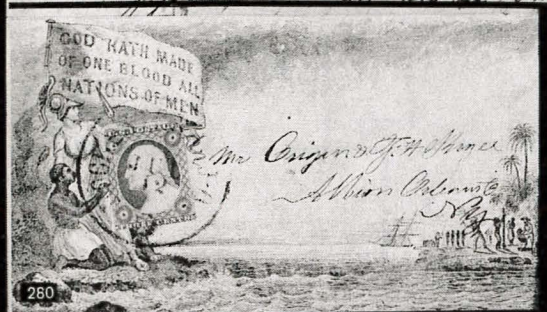 GOD HATH MADE
OF ONE BLOOD ALL
NATIONS OF MEN
Mr
Albion Orleans Co
NY
280